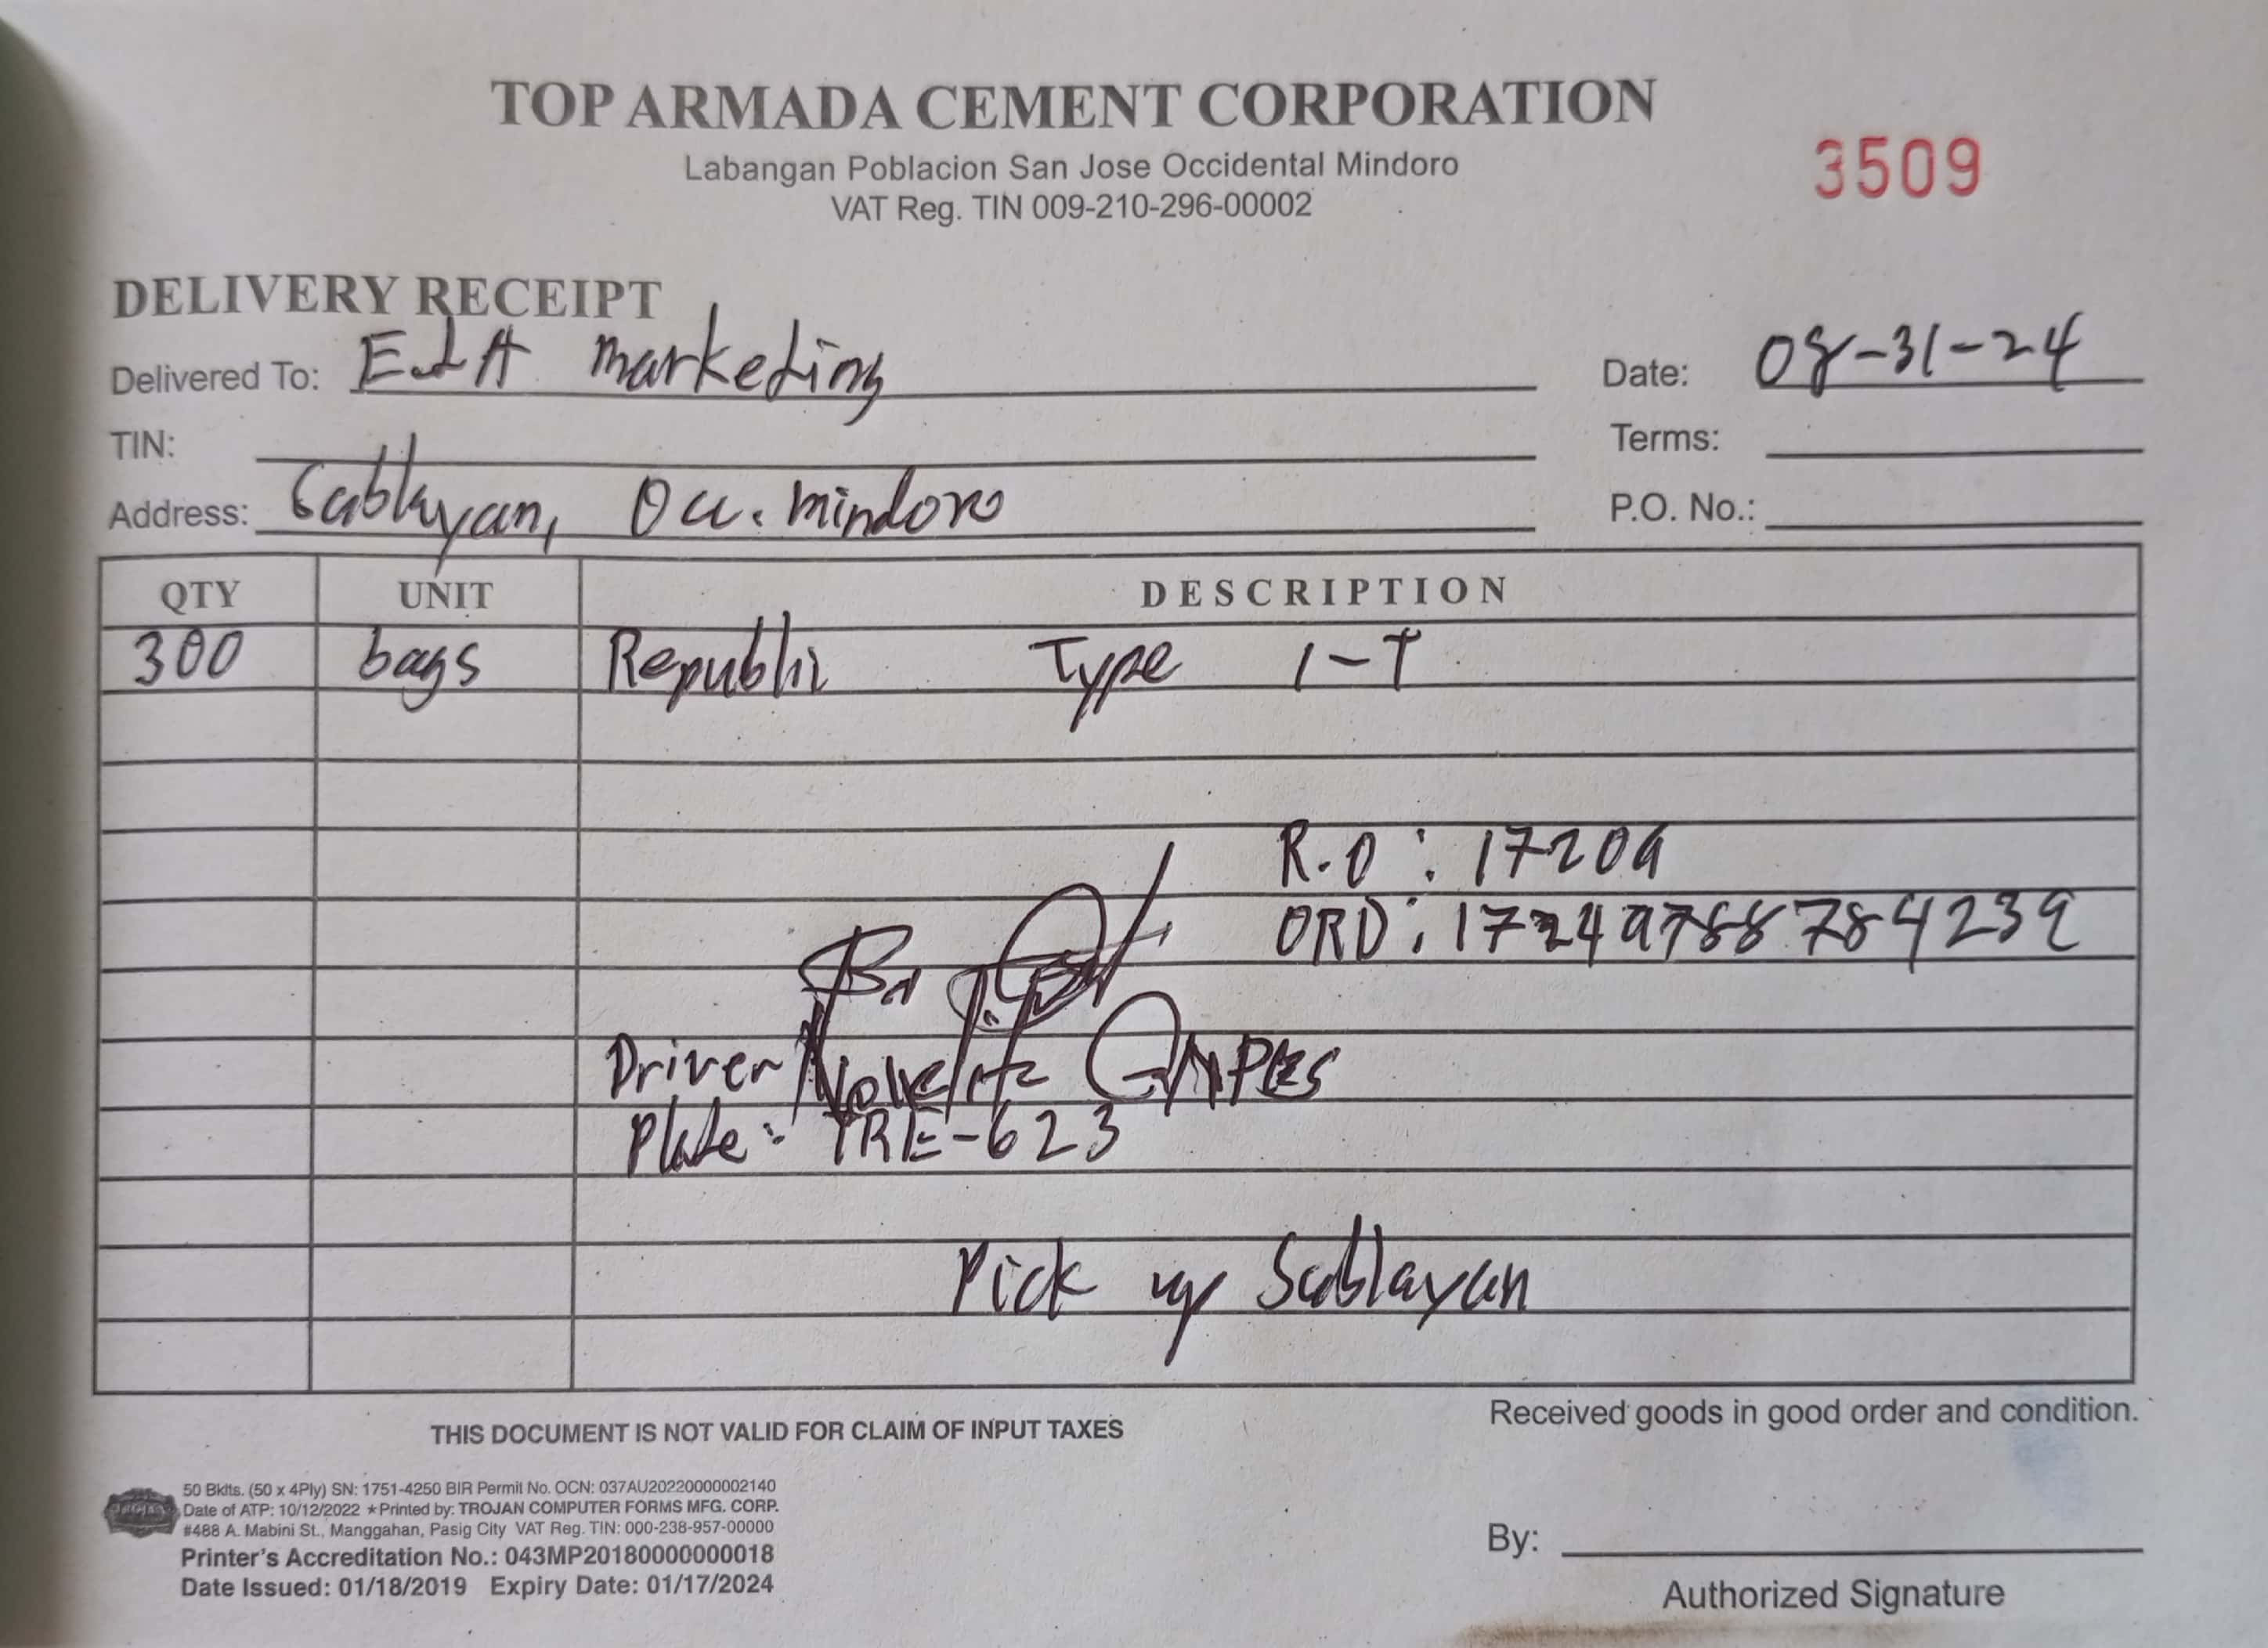 TOP ARMADA CEMENT CORPORATION
Labangan Poblacion San Jose Occidental Mindoro
VAT Reg. TIN 009-210-296-00002
3509
DELIVERY RECEIPT
Delivered To: EJA marketing
Date: 08-31-24
TIN:
Terms:
Address: Sablayan, Occ. Mindoro
P.O. No.:
QTY UNIT DESCRIPTION
300 bags Republic Type 1-T
R.O: 17209
ORD: 17249788784239
Driver
Plate: TRE-623
Pick up Sablayan
THIS DOCUMENT IS NOT VALID FOR CLAIM OF INPUT TAXES
Received goods in good order and condition.
50 Bklts. (50 x 4Ply) SN: 1751-4250 BIR Permit No. OCN: 037AU20220000002140
Date of ATP: 10/12/2022 ★Printed by: TROJAN COMPUTER FORMS MFG. CORP.
#488 A. Mabini St., Manggahan, Pasig City VAT Reg. TIN: 000-238-957-00000
Printer's Accreditation No.: 043MP20180000000018
Date Issued: 01/18/2019 Expiry Date: 01/17/2024
By:
Authorized Signature